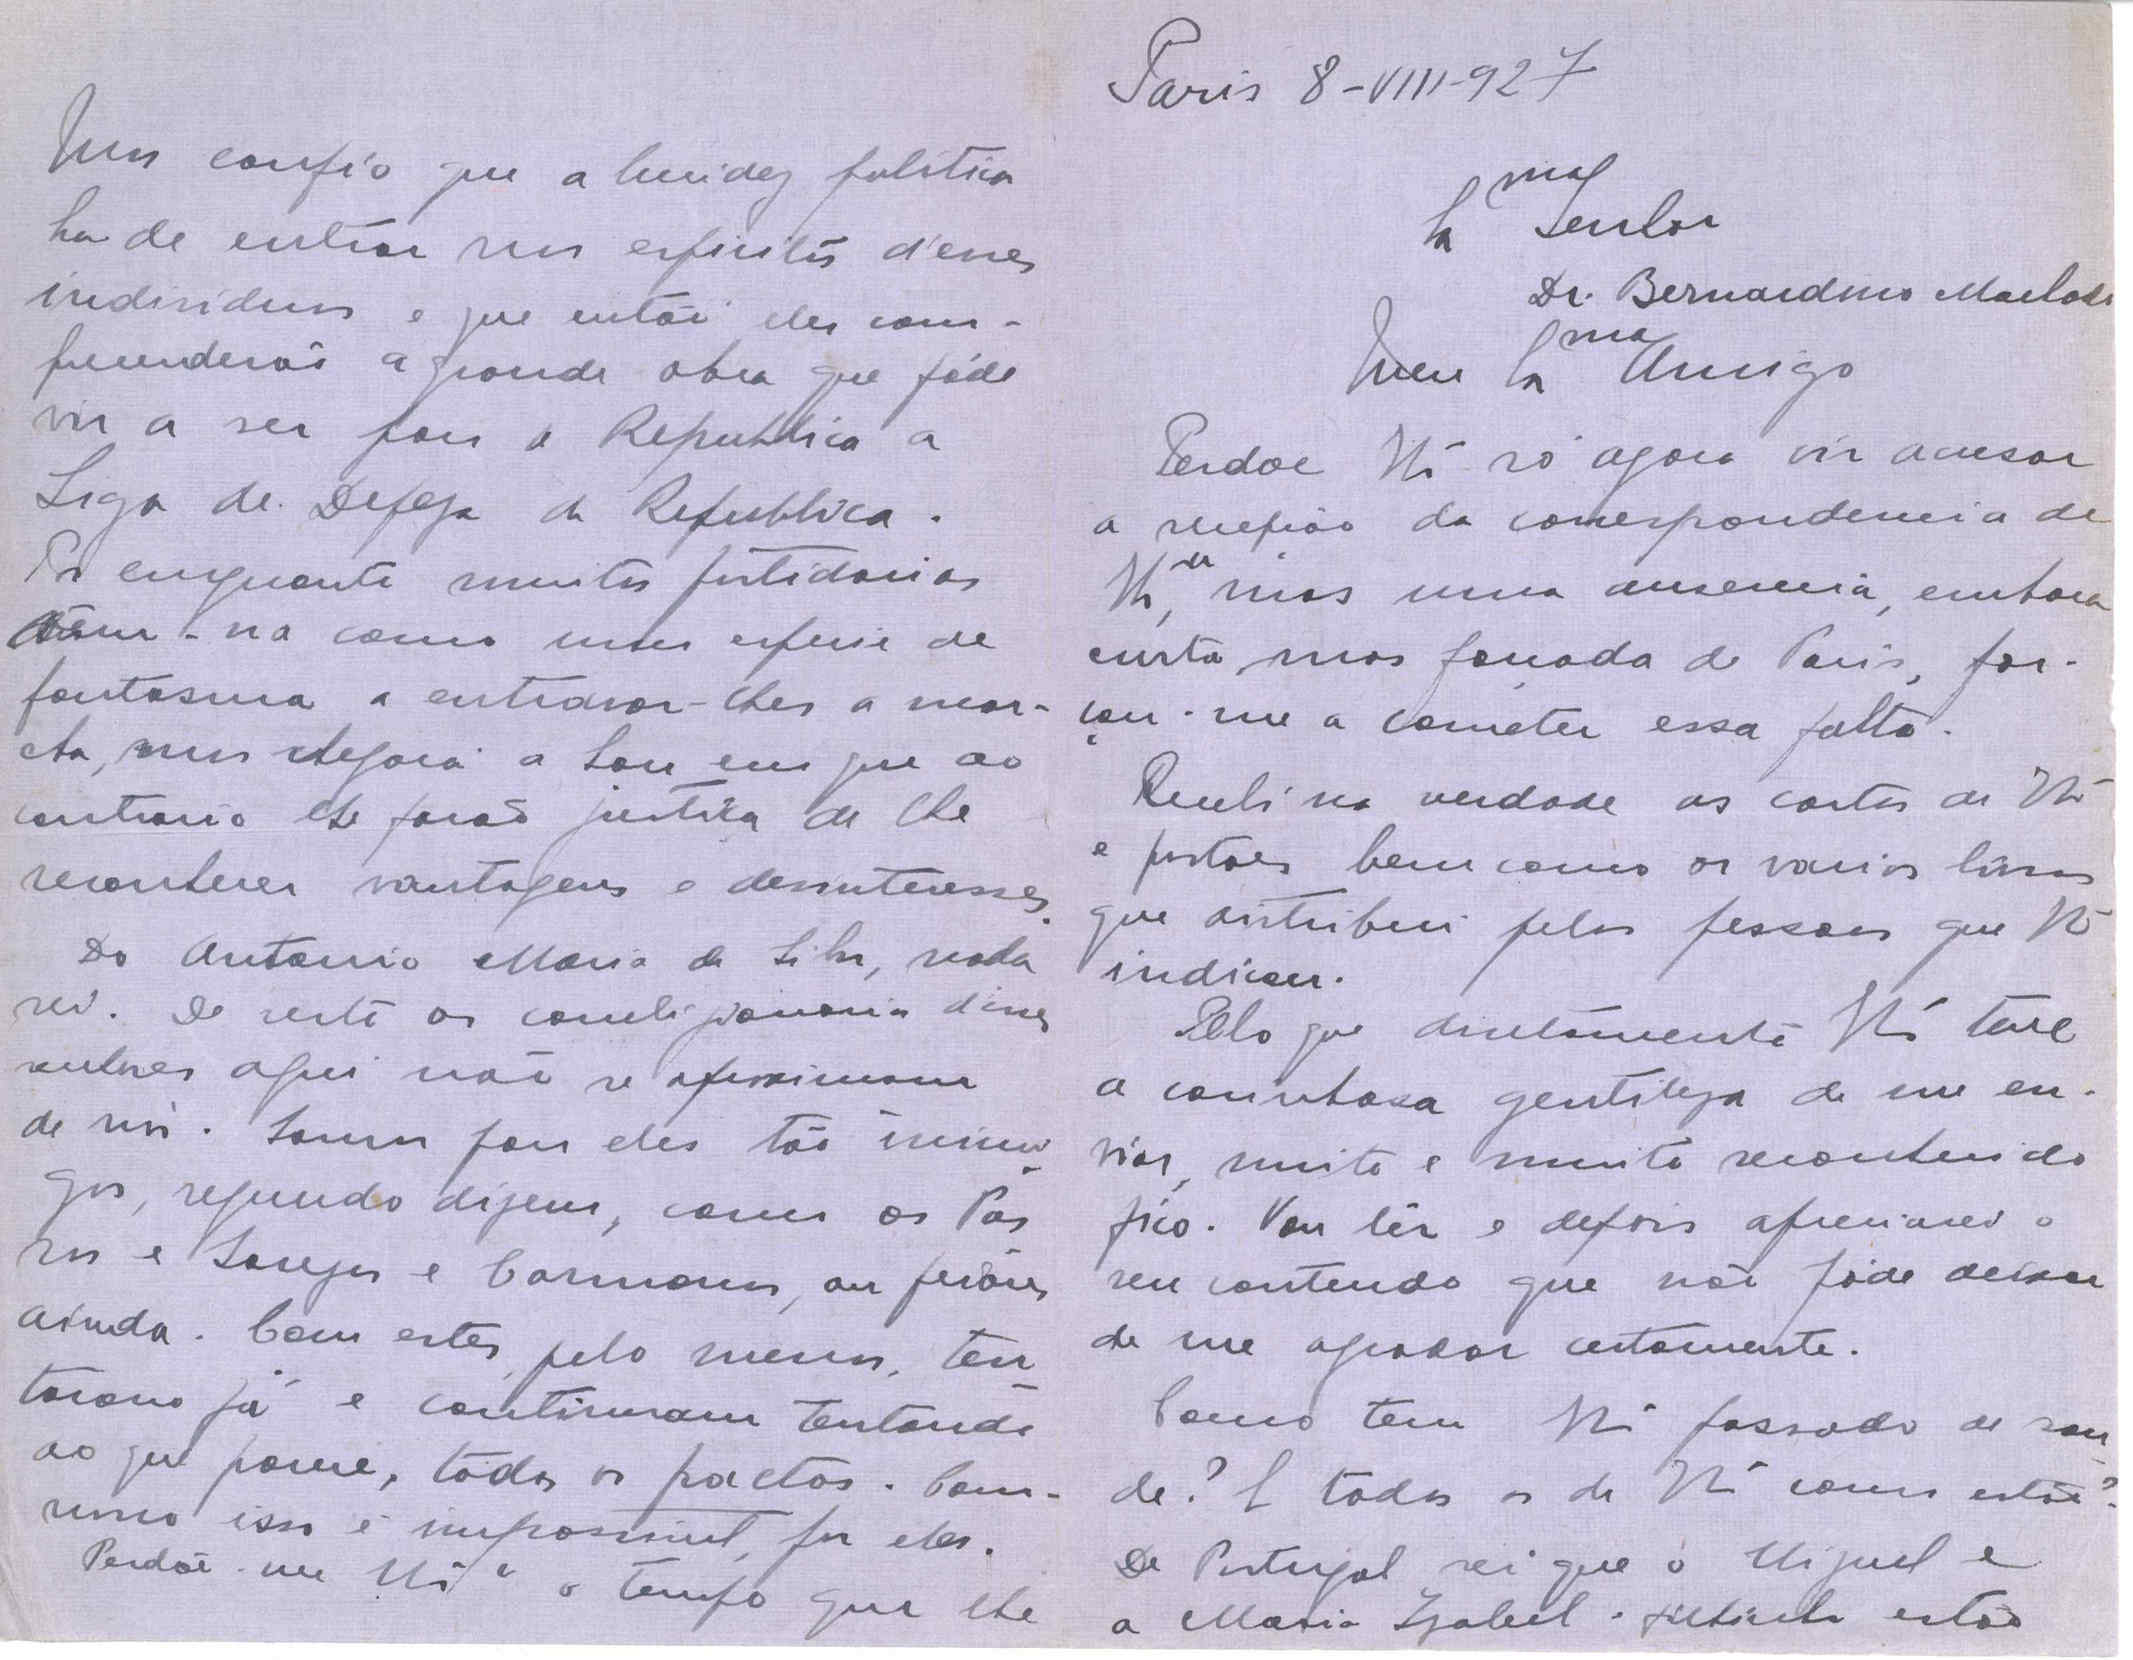 Paris 8-VIII-927
Exmo Senhor
Dr. Bernardino Machado
Meu Exmo Amigo
Perdoe V. Ex.ª só agora vir acusar
a recepção da correspondencia de
V. Ex.ª, mas uma ausencia, embora
curta, mas forçada de Paris, for-
çou-me a cometer essa falta.
Recebi na verdade as cartas de V. Ex.ª
e postaes bem como os varios livros
que distribui pelas pessoas que V. Ex.ª
indicou.
Pelo que diretamente V. Ex.ª teve
a carinhosa gentileza de me en-
viar, muito e muito reconhecido
fico. Vou lêr e depois apreciarei o
seu conteudo que não póde deixar
de me agradar certamente.
Como tem V. Ex.ª passado de sau-
de? E todos os de V. Ex.ª como estão?
De Portugal sei que o Miguel e
a Maria Izabel estão
Mas confio que a lucidez politica
ha de entrar nos espiritos d'esses
individuos e que então eles com-
preenderão a grande obra que póde
vir a ser para a Republica a
Liga de Defeza da Republica.
Por enquanto muitos partidarios
vêem-na como uma especie de
fantasma a entravar-lhes a mar-
cha, mas chegará a hora em que ao
contrario lhe farão justiça de lhe
reconhecer vantagens e desinteresses.
Do Antonio Maria da Silva, nada
sei. De resto os correligionarios d'esses
senhores aqui não se aproximam
de nós. Somos para eles tão inimi-
gos, segundo dizem, como os Pas
sos e Sousas e Carmonas, ou peiores
ainda. Com estes, pelo menos, ten-
taram já e continuam tentando
ao que parece, todos os pactos. Com-
nosco isso é impossivel, por eles.
Perdôe-me V. Ex.ª o tempo que lhe